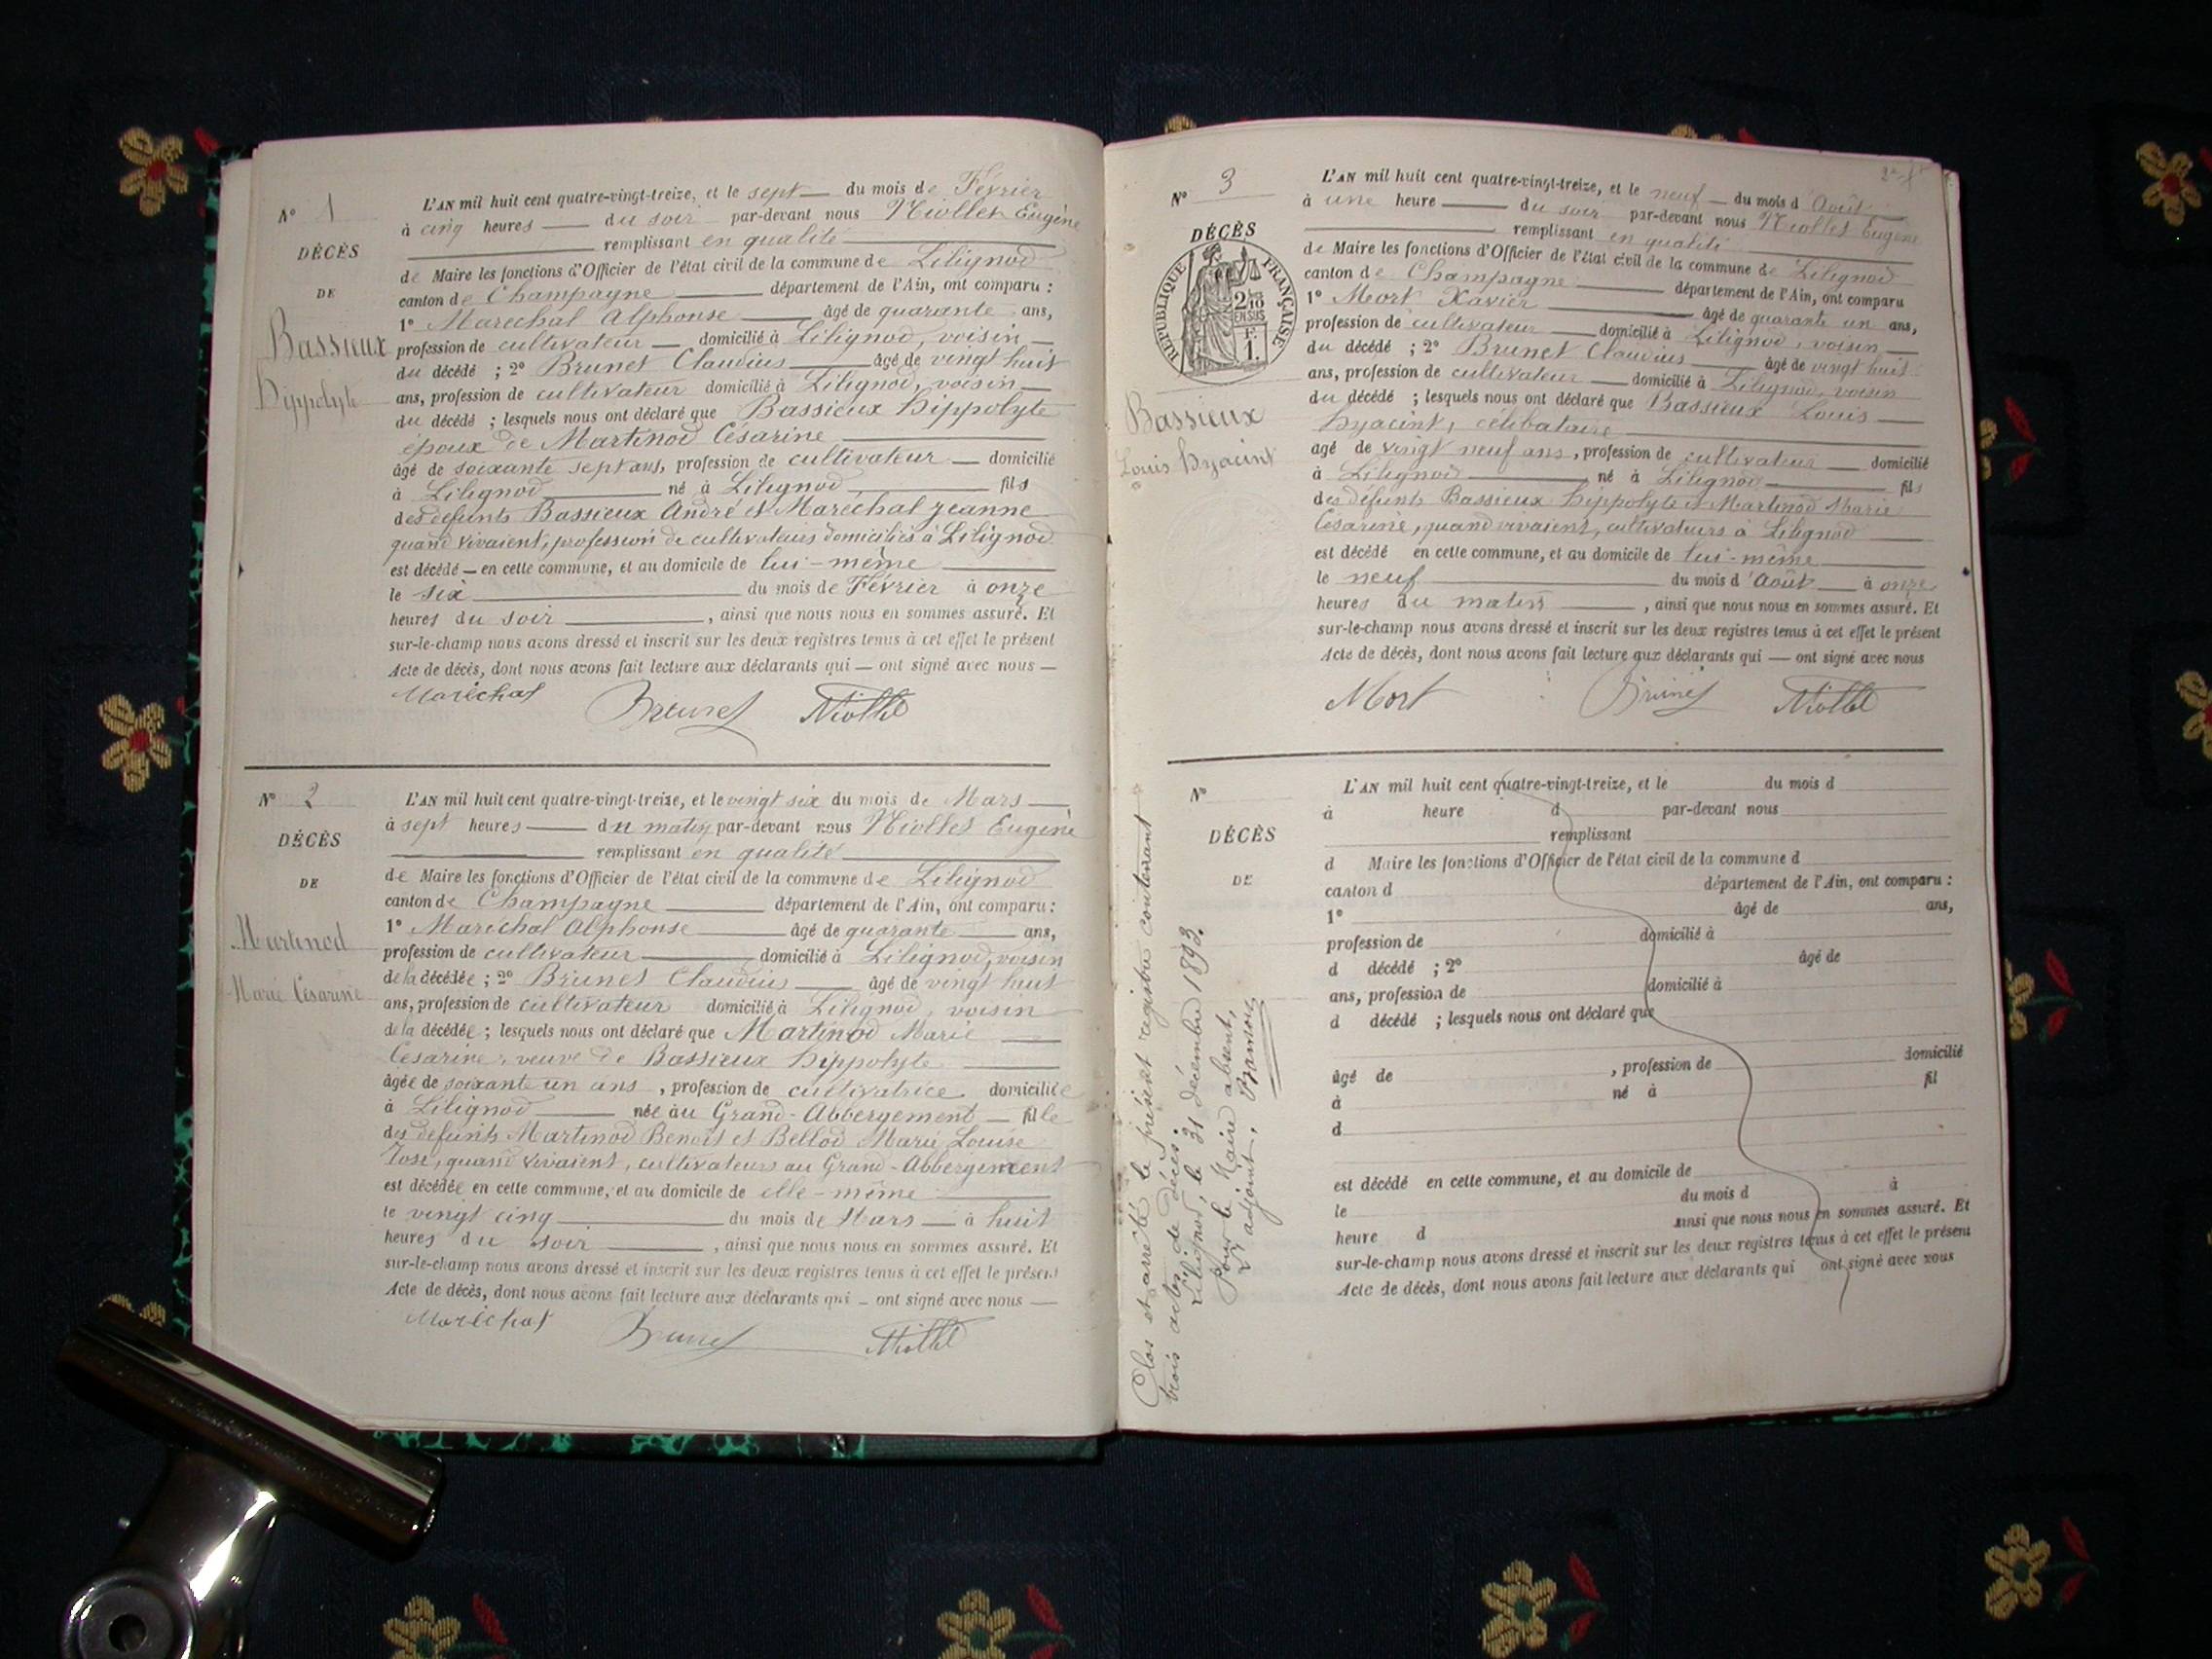 N° 1
DÉCÈS
DE
Bassieux
Hippolyte
L'AN mil huit cent quatre-vingt-treize, et le sept du mois de Février
à cinq heures du soir par-devant nous Niollet Eugène
remplissant en qualité
de Maire les fonctions d'Officier de l'état civil de la commune de Lilignod
canton de Champagne département de l'Ain, ont comparu :
1° Maréchal Alphonse âgé de quarante ans,
profession de cultivateur domicilié à Lilignod, voisin
du décédé ; 2° Brunet Claudius âgé de vingt huit
ans, profession de cultivateur domicilié à Lilignod, voisin
du décédé ; lesquels nous ont déclaré que Bassieux Hippolyte
époux de Martinod Césarine
âgé de soixante sept ans, profession de cultivateur domicilié
à Lilignod né à Lilignod fils
des défunts Bassieux André et Maréchal Jeanne
quand vivaient, profession de cultivateurs domiciliés à Lilignod
est décédé en cette commune, et au domicile de lui-même
le six du mois de Février à onze
heures du soir, ainsi que nous nous en sommes assuré. Et
sur-le-champ nous avons dressé et inscrit sur les deux registres tenus à cet effet le présent
Acte de décès, dont nous avons fait lecture aux déclarants qui — ont signé avec nous —
Maréchal Brunet Niollet
N° 2
DÉCÈS
DE
Martinod
Marie Césarine
L'AN mil huit cent quatre-vingt-treize, et le vingt six du mois de Mars
à sept heures du matin par-devant nous Niollet Eugène
remplissant en qualité
de Maire les fonctions d'Officier de l'état civil de la commune de Lilignod
canton de Champagne département de l'Ain, ont comparu :
1° Maréchal Alphonse âgé de quarante ans,
profession de cultivateur domicilié à Lilignod, voisin
de la décédée ; 2° Brunet Claudius âgé de vingt huit
ans, profession de cultivateur domicilié à Lilignod, voisin
de la décédée ; lesquels nous ont déclaré que Martinod Marie
Césarine, veuve de Bassieux Hippolyte
âgée de soixante un ans, profession de cultivatrice domiciliée
à Lilignod née au Grand-Abbergement fille
des défunts Martinod Benoit et Bellod Marie Louise
José, quand vivaient, cultivateurs au Grand-Abbergement
est décédée en cette commune, et au domicile de elle-même
le vingt cinq du mois de Mars à huit
heures du soir, ainsi que nous nous en sommes assuré. Et
sur-le-champ nous avons dressé et inscrit sur les deux registres tenus à cet effet le présent
Acte de décès, dont nous avons fait lecture aux déclarants qui — ont signé avec nous —
Maréchal Brunet Niollet
N° 3
DÉCÈS
RÉPUBLIQUE FRANÇAISE
2/10 EN SUS
F. 1.
Bassieux
Louis Hyacint
L'AN mil huit cent quatre-vingt-treize, et le neuf du mois d'Août
à une heure du soir par-devant nous Niollet Eugène
remplissant en qualité
de Maire les fonctions d'Officier de l'état civil de la commune de Lilignod
canton de Champagne département de l'Ain, ont comparu
1° Mort Xavier âgé de quarante un ans,
profession de cultivateur domicilié à Lilignod, voisin
du décédé ; 2° Brunet Claudius âgé de vingt huit
ans, profession de cultivateur domicilié à Lilignod, voisin
du décédé ; lesquels nous ont déclaré que Bassieux Louis
Hyacint, célibataire
agé de vingt neuf ans, profession de cultivateur domicilié
à Lilignod né à Lilignod fils
des défunts Bassieux Hippolyte et Martinod Marie
Césarine, quand vivaient, cultivateurs à Lilignod
est décédé en cette commune, et au domicile de lui-même
le neuf du mois d'Août à onze
heures du matin, ainsi que nous nous en sommes assuré. Et
sur-le-champ nous avons dressé et inscrit sur les deux registres tenus à cet effet le présent
Acte de décès, dont nous avons fait lecture aux déclarants qui — ont signé avec nous
Mort Brunet Niollet
N°
DÉCÈS
DE
L'AN mil huit cent quatre-vingt-treize, et le du mois d
à heure d par-devant nous
remplissant
d Maire les fonctions d'Officier de l'état civil de la commune d
canton d département de l'Ain, ont comparu :
1° âgé de ans,
profession de domicilié à
d décédé ; 2° âgé de
ans, profession de domicilié à
d décédé ; lesquels nous ont déclaré que
âgé de , profession de domicilié
à né à fil
d
est décédé en cette commune, et au domicile de
le du mois d à
heure d ainsi que nous nous en sommes assuré. Et
sur-le-champ nous avons dressé et inscrit sur les deux registres tenus à cet effet le présent
Acte de décès, dont nous avons fait lecture aux déclarants qui ont signé avec nous
Clos et arrêté le présent registre contenant
trois actes de décès.
Lilignod, le 31 décembre 1893.
Pour le Maire absent,
L'adjoint,